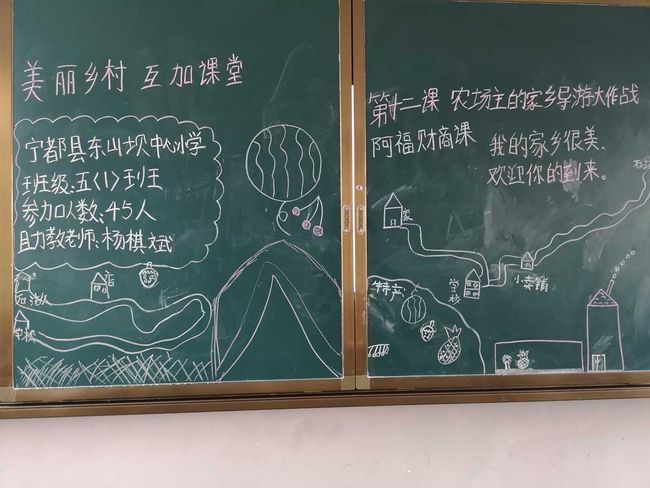 美丽乡村 互加课堂
宁都县东山坝中心小学
班级:五(1)班
参加人数:45人
助教老师:杨棋斌
店
学校
第十二课 农场主的家乡导游大作战
阿福财商课
我的家乡很美、
欢迎你的到来。
家
特产
学校
小卖铺